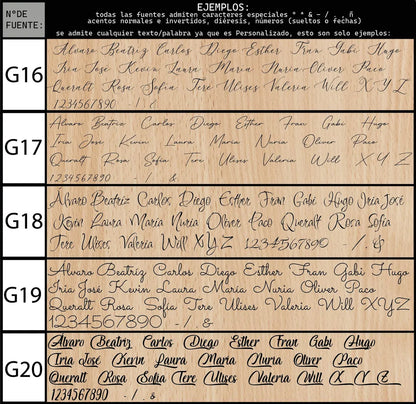 NºDE FUENTE:
EJEMPLOS:
todas las fuentes admiten caracteres especiales " * & - / , . ñ
acentos normales e invertidos, diéresis, números (sueltos o fechas)
se admite cualquier texto/palabra ya que es Personalizado, esto son solo ejemplos:
G16
Álvaro Beatriz Carlos Diego Esther Fran Gabi Hugo
Iria José Kevin Laura María Nuria Oliver Paco
Queralt Rosa Sofía Tere Ulises Valeria Will X Y Z
1234567890 - / . &
G17
Álvaro Beatriz Carlos Diego Esther Fran Gabi Hugo
Iria José Kevin Laura María Nuria Oliver Paco
Queralt Rosa Sofía Tere Ulises Valeria Will X Y Z
1234567890 - / . &
G18
Álvaro Beatriz Carlos Diego Esther Fran Gabi Hugo Iria José
Kevin Laura María Nuria Oliver Paco Queralt Rosa Sofía
Tere Ulises Valeria Will X Y Z 1234567890 - / . &
G19
Álvaro Beatriz Carlos Diego Esther Fran Gabi Hugo
Iria José Kevin Laura María Nuria Oliver Paco
Queralt Rosa Sofía Tere Ulises Valeria Will X Y Z
1234567890 - / . &
G20
Álvaro Beatriz Carlos Diego Esther Fran Gabi Hugo
Iria José Kevin Laura María Nuria Oliver Paco
Queralt Rosa Sofía Tere Ulises Valeria Will X Y Z
1234567890 - / . &